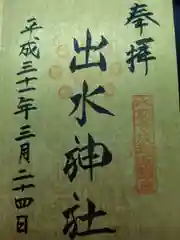 奉拝
出水神社
平成三十一年三月二十四日